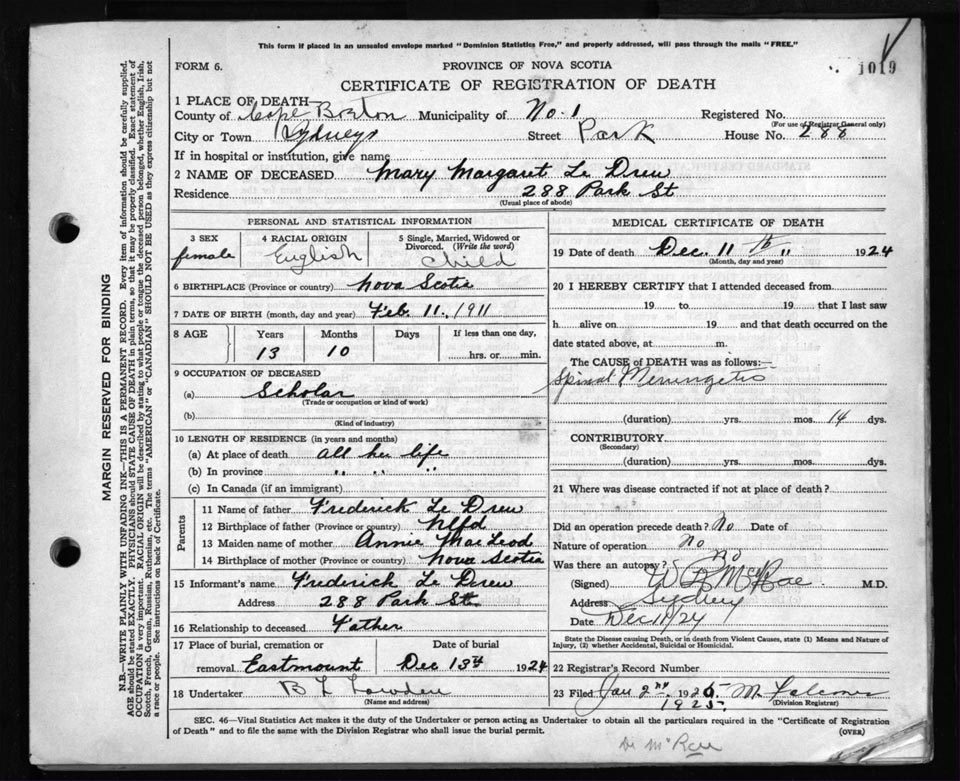 This form if placed in an unsealed envelope marked "Dominion Statistics Free," and properly addressed, will pass through the mails "FREE."
FORM 6.
PROVINCE OF NOVA SCOTIA
1019
CERTIFICATE OF REGISTRATION OF DEATH
1 PLACE OF DEATH
County of Cape Breton Municipality of No. 1 Registered No.
(For use of Registrar General only)
City or Town Sydney Street Park House No. 288
If in hospital or institution, give name
2 NAME OF DECEASED Mary Margaret Le Drew
Residence 288 Park St
(Usual place of abode)
PERSONAL AND STATISTICAL INFORMATION
3 SEX
female
4 RACIAL ORIGIN
English
5 Single, Married, Widowed or Divorced. (Write the word)
Child
6 BIRTHPLACE (Province or country) Nova Scotia
7 DATE OF BIRTH (month, day and year) Feb. 11, 1911
8 AGE Years Months Days If less than one day,
13 10 hrs. or min.
9 OCCUPATION OF DECEASED
(a) Scholar
(Trade or occupation or kind of work)
(b)
(Kind of industry)
10 LENGTH OF RESIDENCE (in years and months)
(a) At place of death all her life
(b) In province " " "
(c) In Canada (if an immigrant)
Parents
11 Name of father Frederick Le Drew
12 Birthplace of father (Province or country) Nfld
13 Maiden name of mother Annie MacLeod
14 Birthplace of mother (Province or country) Nova Scotia
15 Informant's name Frederick Le Drew
Address 288 Park St.
16 Relationship to deceased Father
17 Place of burial, cremation or Date of burial
removal Eastmount Dec 13th 1924
18 Undertaker B L Lowden
(Name and address)
MEDICAL CERTIFICATE OF DEATH
19 Date of death Dec. 11 th " 1924
(Month, day and year)
20 I HEREBY CERTIFY that I attended deceased from
19 to 19 that I last saw
h alive on 19 and that death occurred on the
date stated above, at m.
The CAUSE of DEATH was as follows:—
Spinal Meningetis
(duration) yrs. mos. 14 dys.
CONTRIBUTORY
(Secondary)
(duration) yrs. mos. dys.
21 Where was disease contracted if not at place of death?
Did an operation precede death? No Date of
Nature of operation No
Was there an autopsy? No
(Signed) McRae M.D.
Address Sydney
Date Dec 11/24
State the Disease causing Death, or in death from Violent Causes, state (1) Means and Nature of
Injury, (2) whether Accidental, Suicidal or Homicidal.
22 Registrar's Record Number
23 Filed Jan 2nd 1925 M Falconer
1925. (Division Registrar)
SEC. 46—Vital Statistics Act makes it the duty of the Undertaker or person acting as Undertaker to obtain all the particulars required in the "Certificate of Registration
of Death" and to file the same with the Division Registrar who shall issue the burial permit.
(OVER)
Dr McRae
MARGIN RESERVED FOR BINDING
N.B.—WRITE PLAINLY WITH UNFADING INK—THIS IS A PERMANENT RECORD. Every item of information should be carefully supplied.
AGE should be stated EXACTLY. PHYSICIANS should STATE CAUSE OF DEATH in plain terms, so that it may be properly classified. Exact statement of
OCCUPATION is very important. RACIAL ORIGIN will be described by stating to what people or tongue the deceased person belonged, whether English, Irish,
Scotch, French, German, Russian, Ruthenian, etc. The terms "AMERICAN" or "CANADIAN" SHOULD NOT BE USED as they express citizenship but not
a race or people. See instructions on back of Certificate.